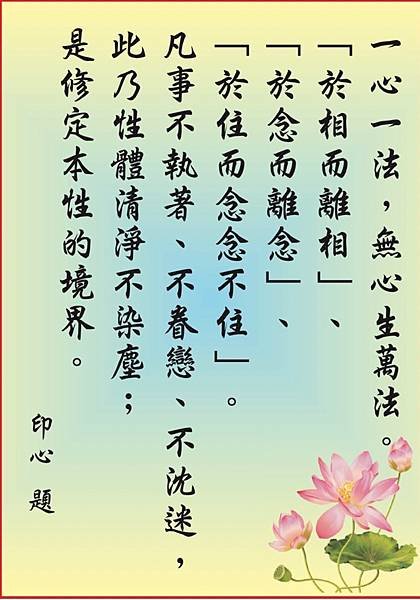 一心一法，無心生萬法。
「於相而離相」、
「於念而離念」、
「於住而念念不住」。
凡事不執著、不眷戀、不沈迷，
此乃性體清淨不染塵；
是修定本性的境界。
印心 題